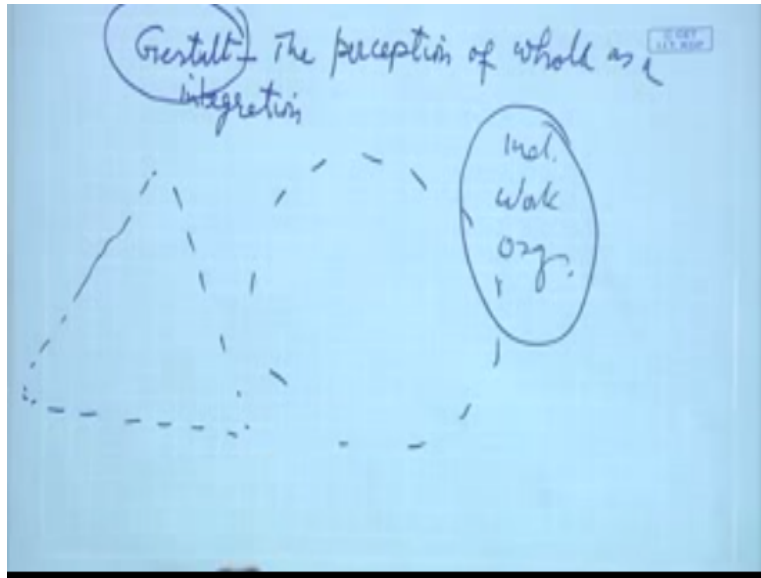 Gestalt - The perception of whole as a
integration
Ind.
Work
org.